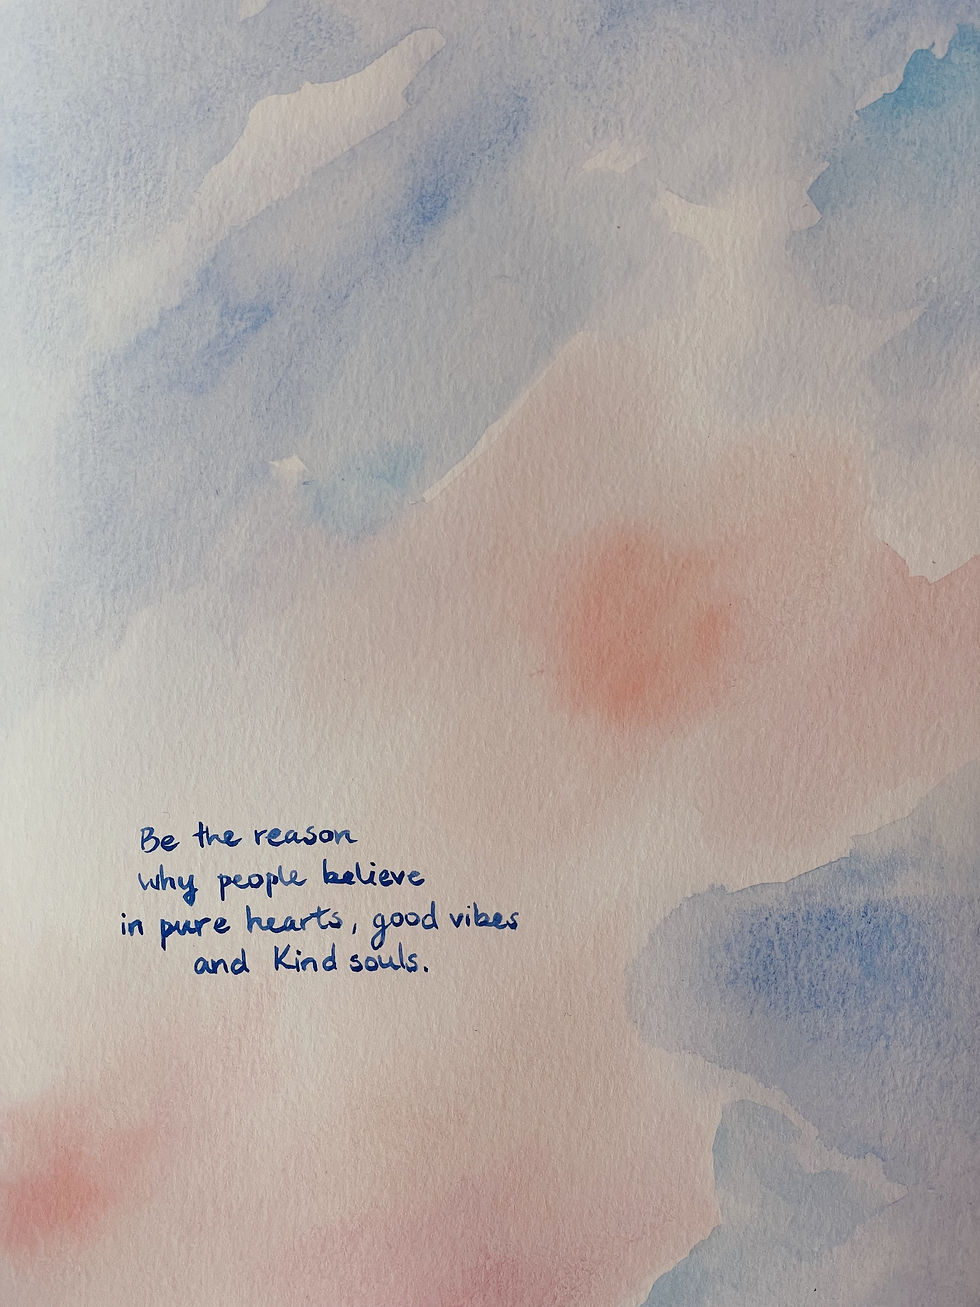 Be the reason
why people believe
in pure hearts, good vibes
and Kind souls.